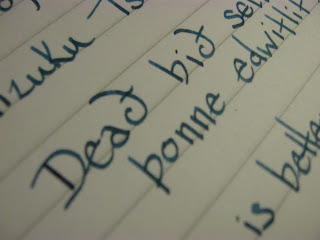 izuku Ts
Deað bið sel
þonne edwitlif
is bette